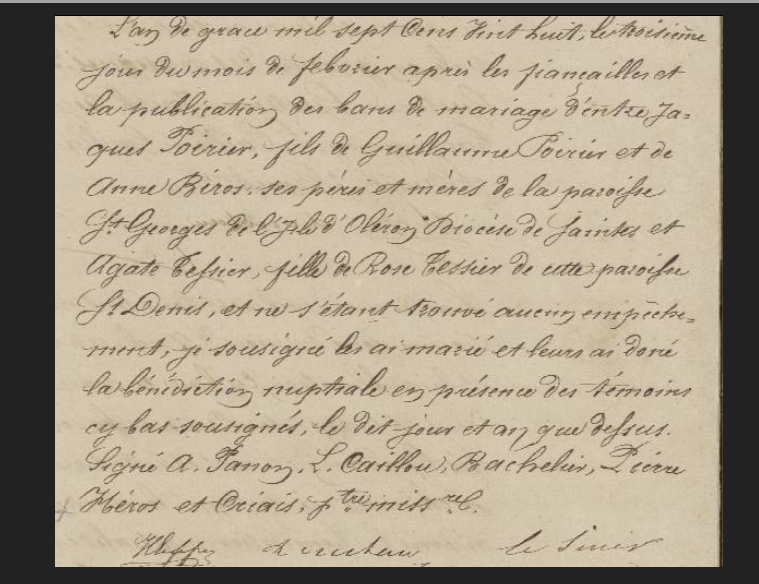 L'an de grace mil sept Cens Vint huit, le troisième
jour du mois de febvrier après les fiançailles et
la publication des bans de mariage d'entre Ja=
ques Poirier, fils de Guillaume Poirier et de
Anne Béros. ses pères et mères de la paroisse
St. Georges de l'Isle d'Oléron Diocése de Saintes et
Agate Tessier, fille de Rose Tessier de cette paroisse
St Denis, et ne s'étant trouvé aucun empêche=
ment, je sousigné les ai marié et leurs ai doné
la bénédiction nuptiale en présence des témoins
cy bas sousignés, le dit jour et an que dessus.
Signé A. Panon, L. Caillou, Bachelier, Pierre
Héros et Criais, ptre. miss re.
le